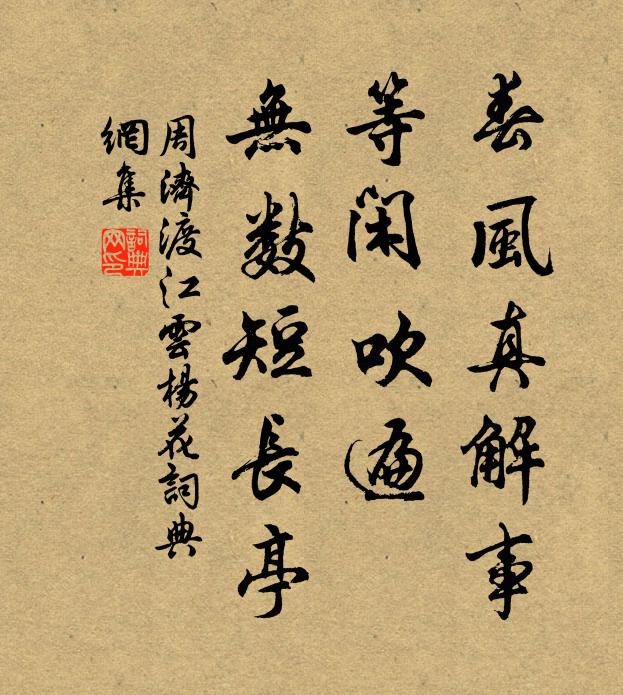 春風真解事
等閑吹遍
無數短長亭
周濟渡江雲楊花詞典
網集
詞典
网印